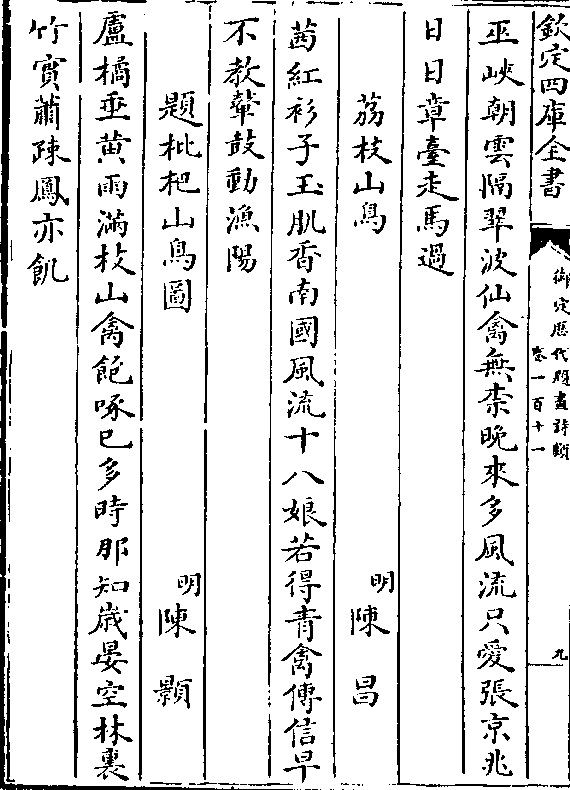 欽定四庫全書
御定歷代題畫詩類
卷一百十一
九
巫峽朝雲隔翠波仙禽無柰晚來多風流只愛張京兆
日日章臺走馬過
荔枝山鳥
明陳昌
茜紅衫子玉肌香南國風流十八娘若得青禽傳信早
不教鼙鼓動漁陽
題枇杷山鳥圖
明陳顥
盧橘垂黄雨滿枝山禽飽啄已多時那知歳晏空林裏
竹實蕭疎鳳亦飢